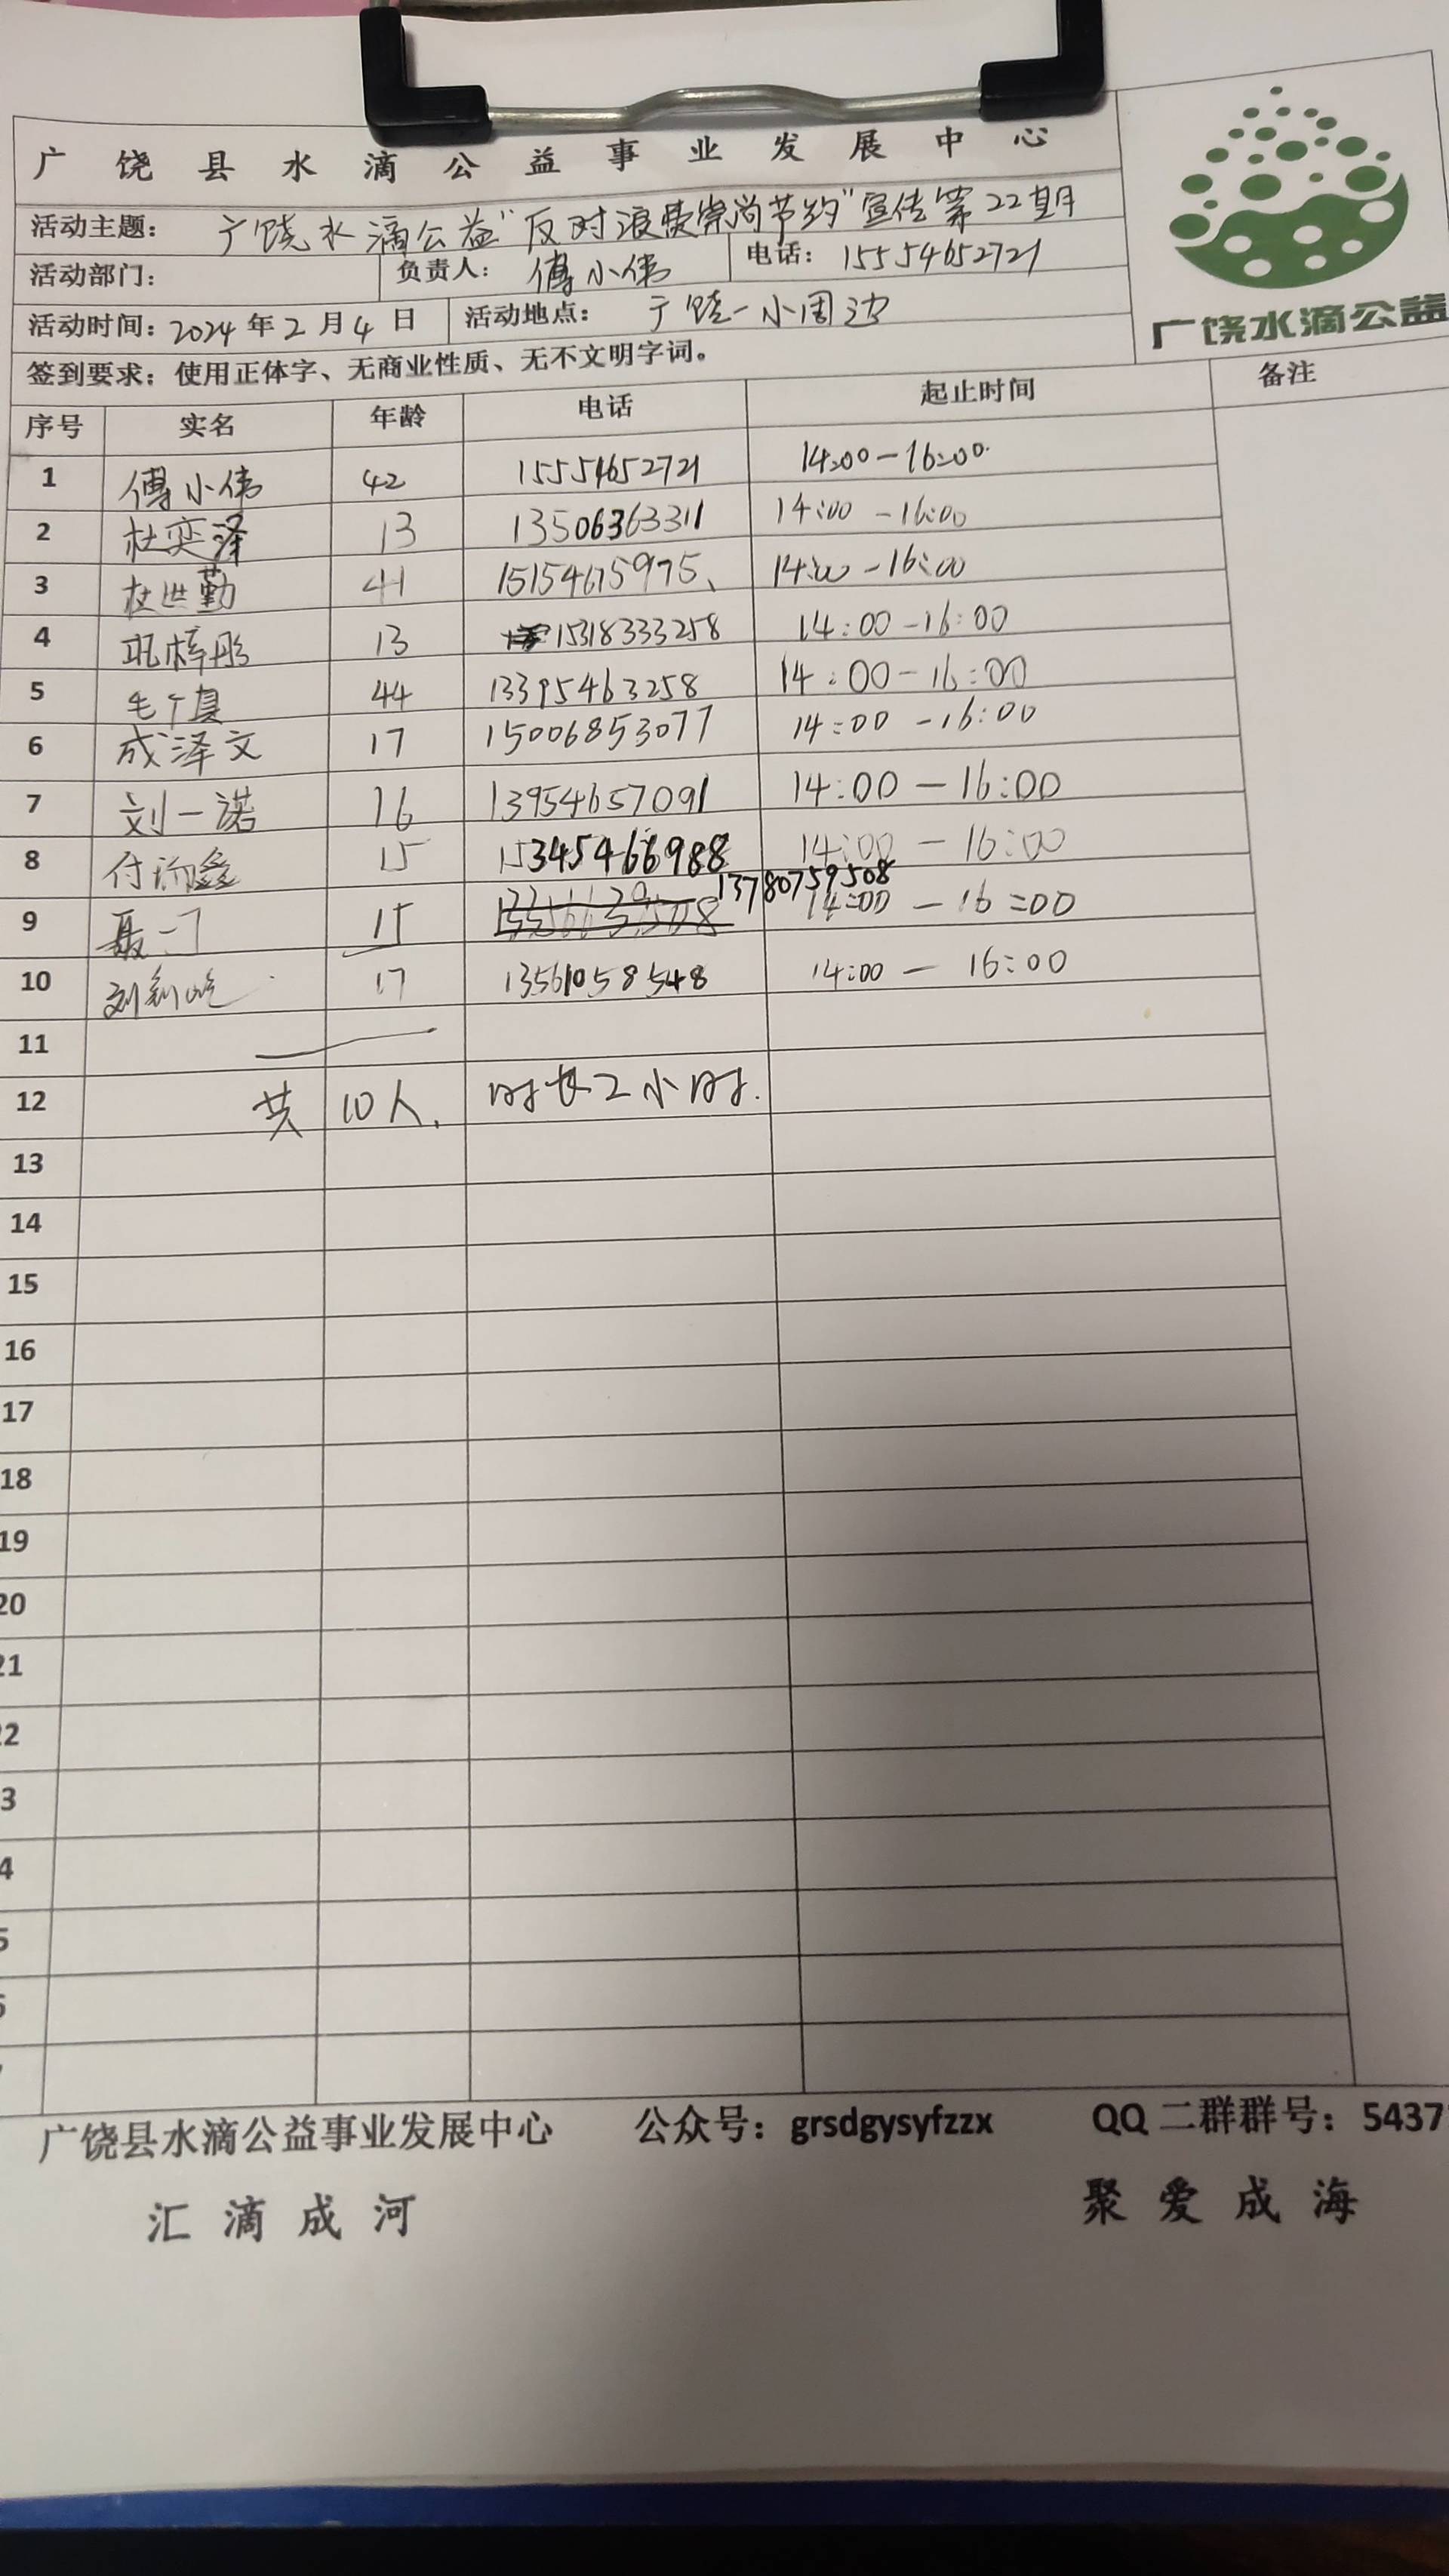 广饶县水滴公益事业发展中心
活动主题： 广饶水滴公益“反对浪费崇尚节约”宣传第22期
活动部门： 负责人： 傅小伟 电话： 15554652721
活动时间：2024年2月4日 活动地点： 广饶一小周边
广饶水滴公益
签到要求：使用正体字、无商业性质、无不文明字词。
序号 实名 年龄 电话 起止时间 备注
1 傅小伟 42 15554652721 14:00-16:00
2 杜奕泽 13 13506363311 14:00-16:00
3 杜世勤 41 15154675975 14:00-16:00
4 巩梓彤 13 15318333258 14:00-16:00
5 44 13395463258 14:00-16:00
6 成泽文 17 15006853077 14:00-16:00
7 刘一诺 16 13954657091 14:00-16:00
8 付 鑫 15 15345466988 14:00-16:00
9 聂一 15 13780759508 14:00-16:00
10 刘 17 13561058548 14:00-16:00
11
12 共10人. 时长2小时.
13
14
15
16
17
18
19
20
21
22
3
4
5
6
广饶县水滴公益事业发展中心 公众号：grsdgysyfzzx QQ二群群号：5437
汇滴成河 聚爱成海